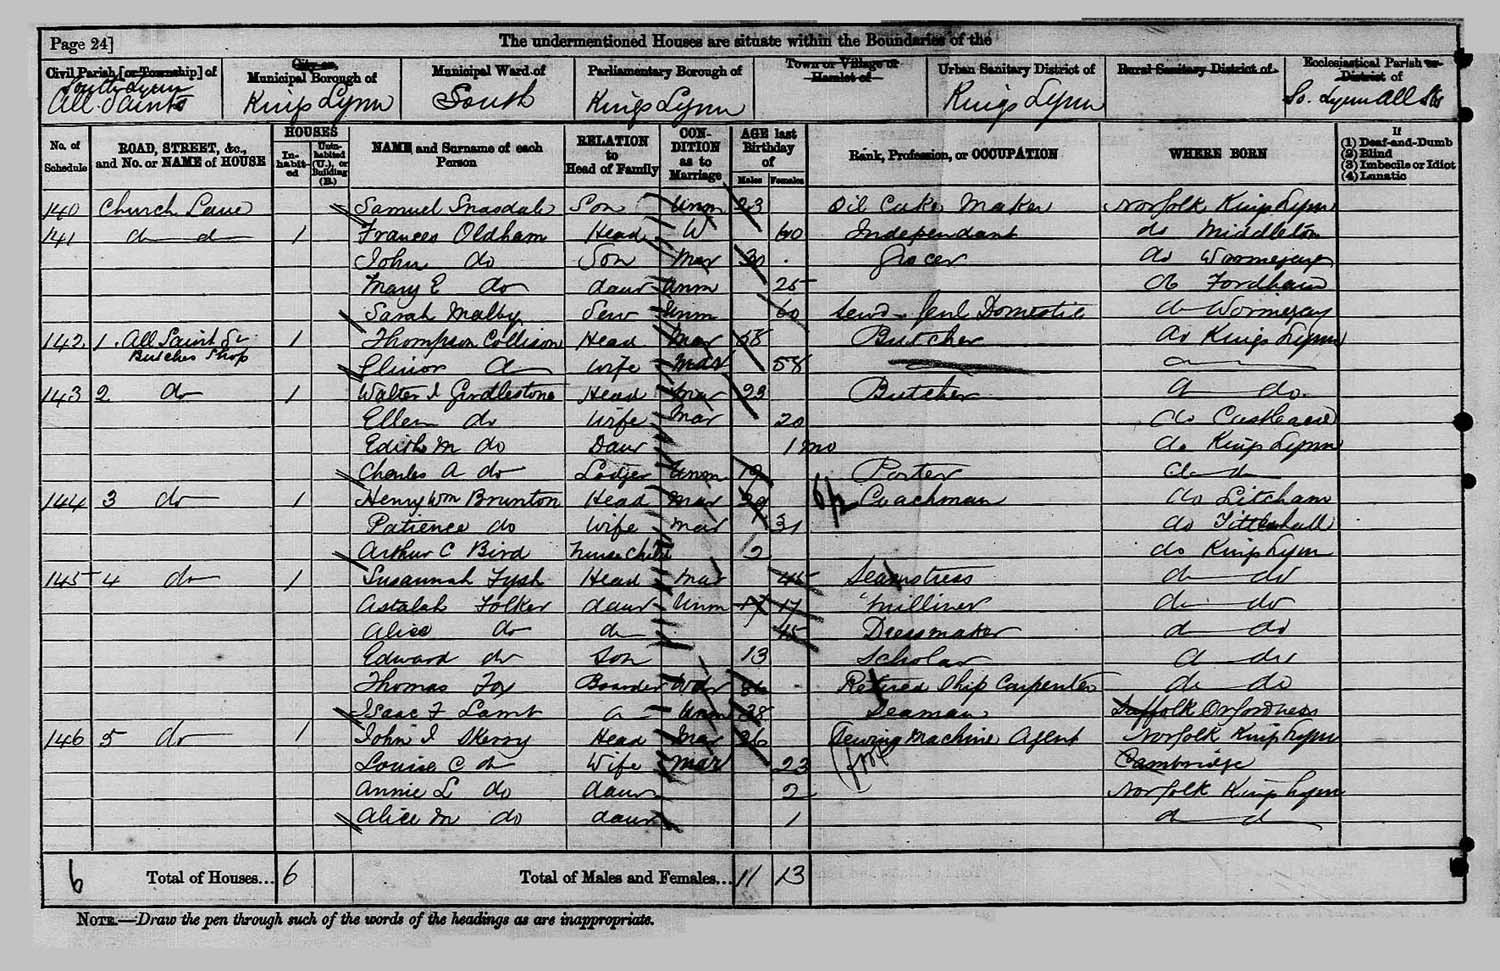 Page 24]
The undermentioned Houses are situate within the Boundaries of the
Civil Parish [or Township] of South Lynn All Saints
City or Municipal Borough of Kings Lynn
Municipal Ward of South
Parliamentary Borough of Kings Lynn
Town or Village or Hamlet of
Urban Sanitary District of Kings Lynn
Rural Sanitary District of
Ecclesiastical Parish or District of So. Lynn All Sts
No. of Schedule
ROAD, STREET, &c., and No. or NAME of HOUSE
HOUSES In-habit-ed Unin-habited (U.), or Building (B.)
NAME and Surname of each Person
RELATION to Head of Family
CON-DITION as to Marriage
AGE last Birthday of Males Females
Rank, Profession, or OCCUPATION
WHERE BORN
If (1) Deaf-and-Dumb (2) Blind (3) Imbecile or Idiot (4) Lunatic
140 Church Lane Samuel Son Unm 23 Oil Cake Maker Norfolk Kings Lynn
141 do do 1 Frances Oldham Head W 60 Independant do Middleton
John do Son Mar 30 Grocer do Wormegay
Mary E do daur Unm 25 do Fordham
Sarah Malby Serv Unm 60 Serv Genl Domestic do Wormegay
142 1 All Saint St 1 Thompson Collison Head Mar 58 Butcher do Kings Lynn
Butchers Shop
Elinor do Wife Mar 58 do
143 2 do 1 Walter J Girdlestone Head Mar 23 Butcher do do
Ellen do Wife Mar 20 do Castleacre
Edith M do Daur 1 mo do Kings Lynn
Charles A do Lodger Unm 19 Porter do do
144 3 do 1 Henry Wm Brunton Head Mar 39 6/2 Coachman do Litcham
Patience do Wife Mar 31 do Tittleshall
Arthur C Bird Nurse Child 2 do Kings Lynn
145 4 do 1 Susannah Head Mar 45 Seamstress do do
Folker daur Unm 17 17 Milliner do do
Alice do do 45 Dressmaker do do
Edward do Son 13 Scholar do do
Thomas Fox Boarder Wdr 86 Retired Ship Carpenter do do
Isaac F Lamb do Unm 38 Seaman Suffolk Orfordness
146 5 do 1 John J Skerry Head Mar 26 Sewing Machine Agent Norfolk Kings Lynn
Louisa C do Wife Mar 23 Cambridge
Annie L do daur 2 Norfolk Kings Lynn
Alice M do daur 1 do do
6 Total of Houses... 6 Total of Males and Females... 11 13
NOTE.—Draw the pen through such of the words of the headings as are inappropriate.